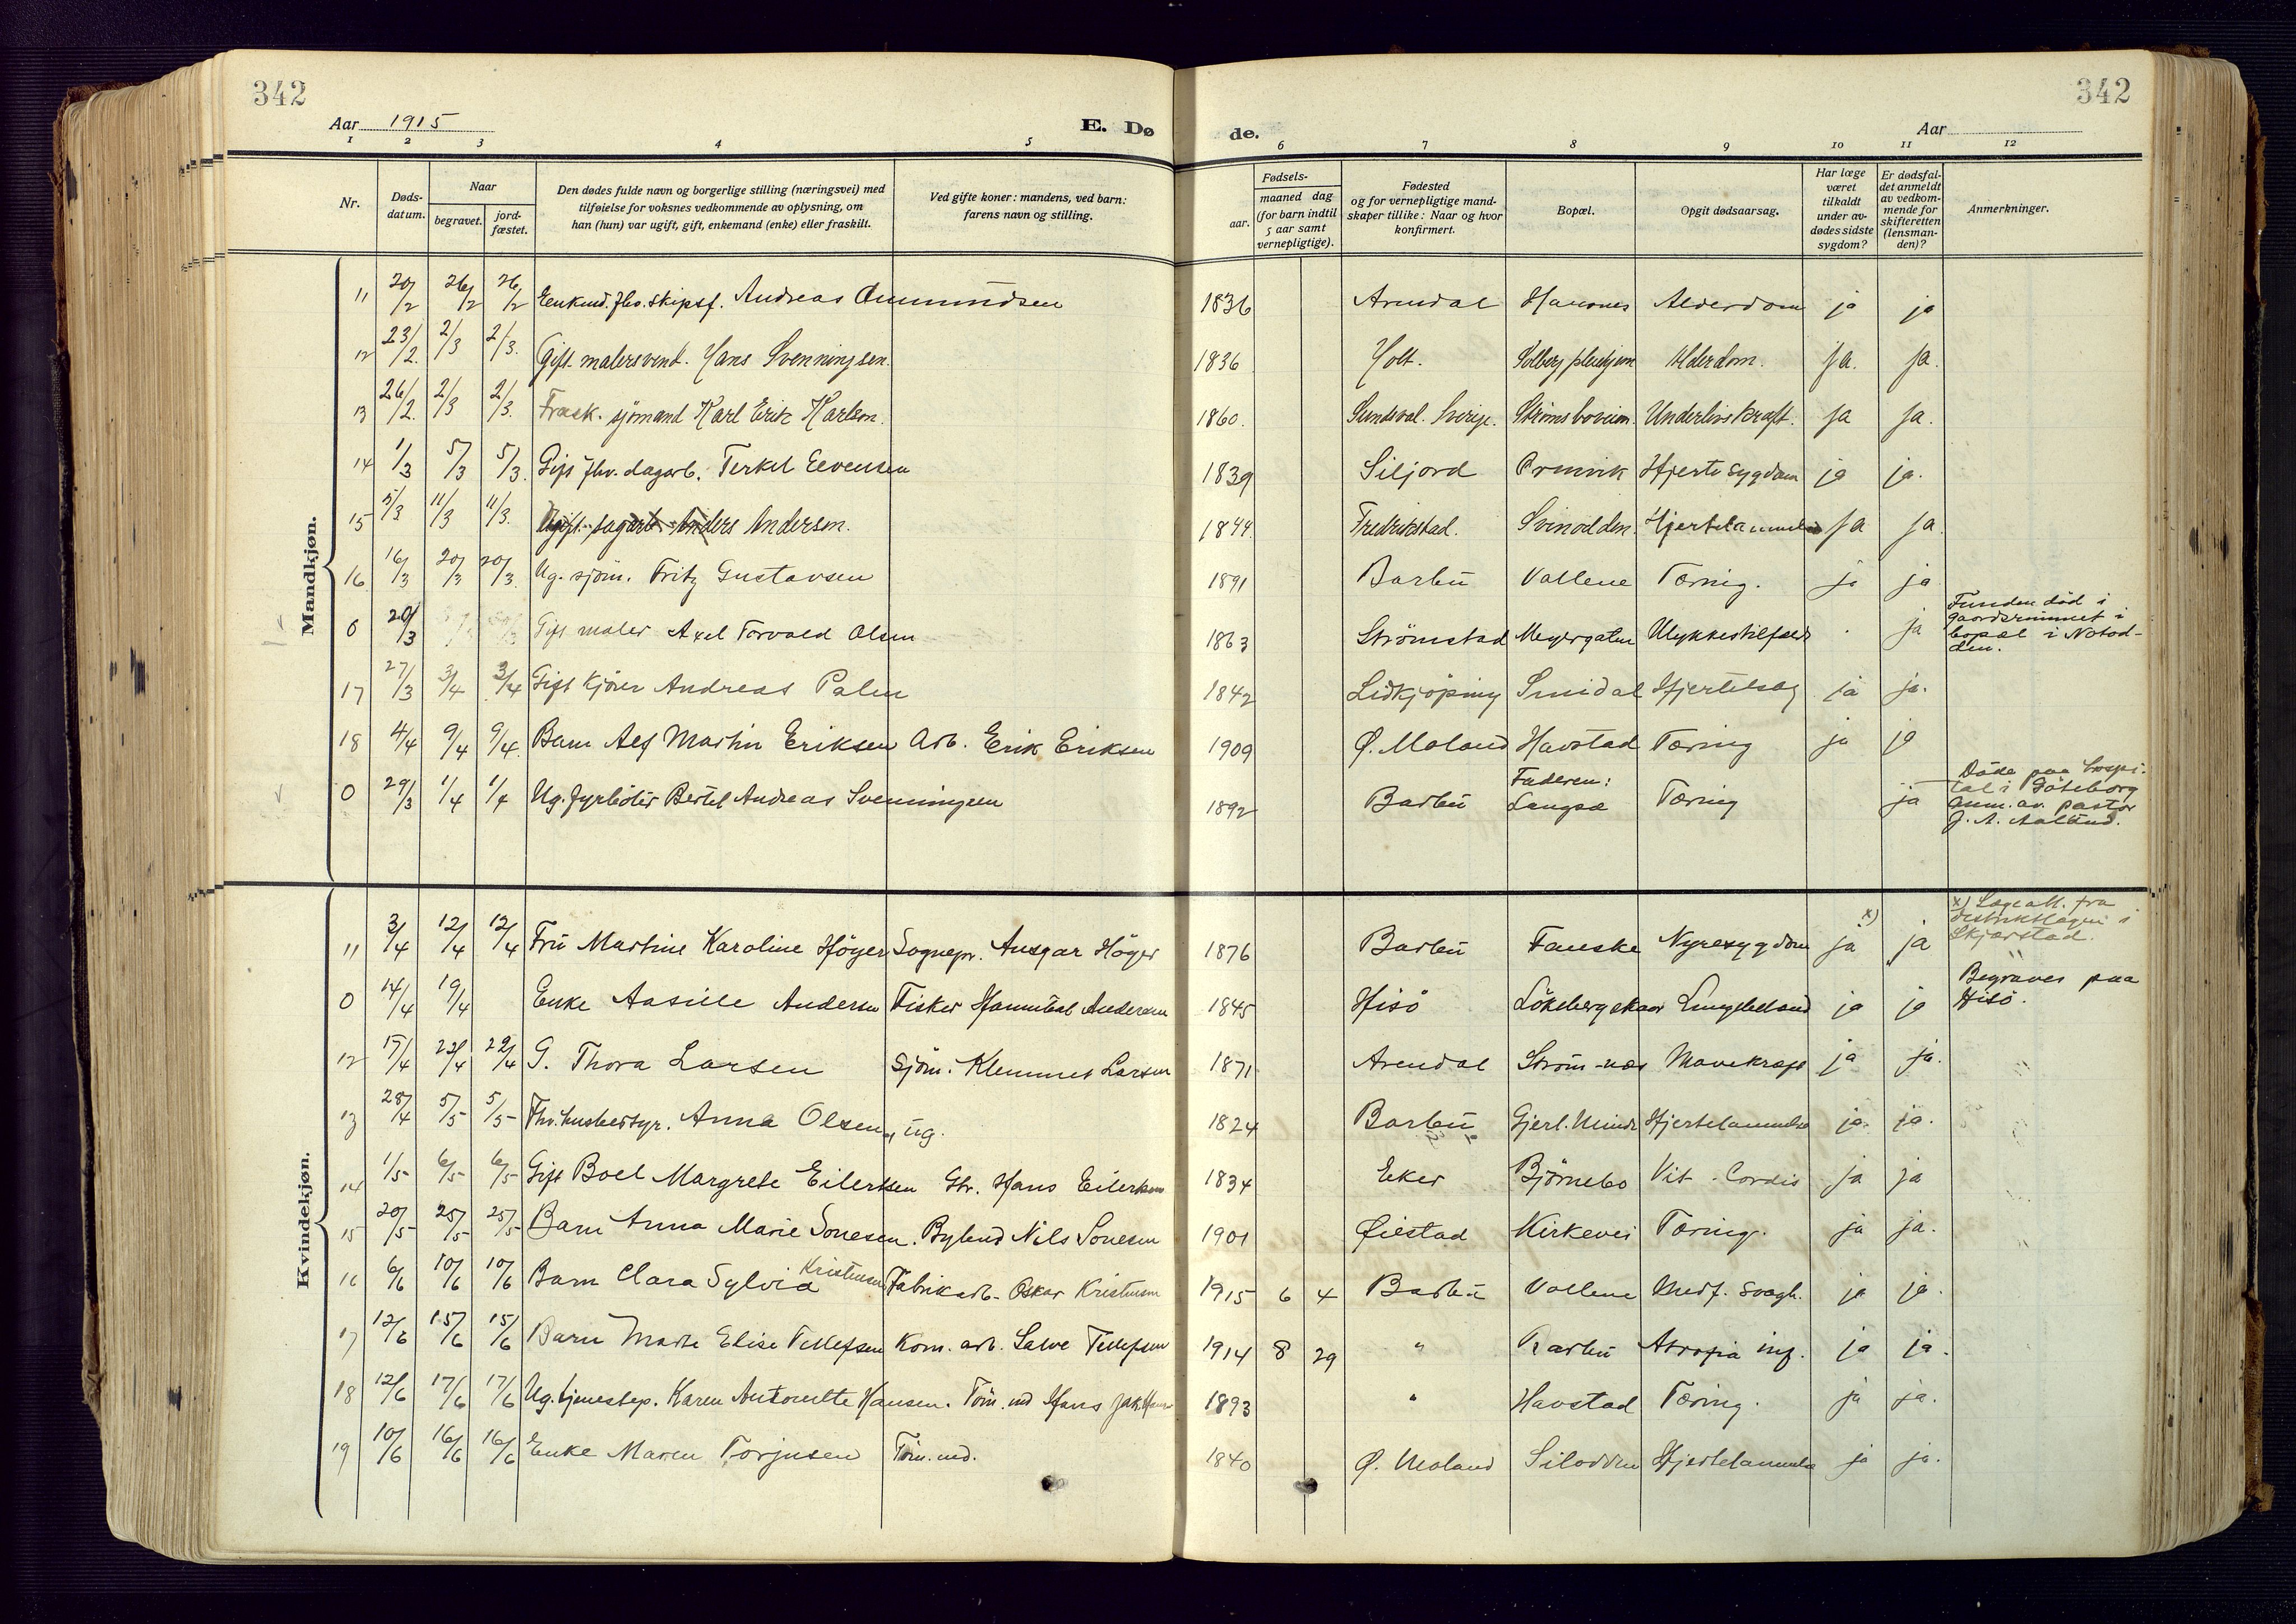 342
342
Aar 1915
E. Dø
de.
Aar
1 2 3 4 5 6 7 8 9 10 11 12
Nr.
Døds-
datum.
Naar
begravet.
jord-
fæstet.
Den dødes fulde navn og borgerlige stilling (næringsvei) med
tilføielse for voksnes vedkommende av oplysning, om
han (hun) var ugift, gift, enkemand (enke) eller fraskilt.
Ved gifte koner: mandens, ved barn:
farens navn og stilling.
Fødsels-
aar.
maaned dag
(for barn indtil
5 aar samt
vernepligtige).
Fødested
og for vernepligtige mand-
skaper tillike: Naar og hvor
konfirmert.
Bopæl.
Opgit dødsaarsag.
Har læge
været
tilkaldt
under av-
dødes sidste
sygdom?
Er dødsfal-
det anmeldt
av vedkom-
mende for
skifteretten
(lensman-
den)?
Anmerkninger.
Mandkjøn.
11 20/2 26/2 26/2 Enkmd. fhv. skipsf. Andreas Ommundsen 1836 Arendal Alderdom ja ja
12 23/2. 2/3 2/3. Gift malersvend. Hans Svenningsen. 1836 Holt. Solberg pleiehjem Alderdom. Ja. Ja.
13 26/2. 2/3 2/3. Frask. sjömand Karl Erik Karlsen. 1860. Sundsval. Sverige. Underlivskræft. Ja Ja.
14 1/3 5/3 5/3. Gift fhv. dagarb. Terkel Eevensen 1839 Siljord Hjertesygdom ja ja.
15 5/3 11/3 11/3. Ugift Anders Andersen. 1844. Fredrikstad. Svinodden. Hjertelammelse Ja Ja.
16 16/3 20/3 20/3. Ug. sjöm. Fritz Gustavsen 1891 Barbu Vollene Tæring. ja ja
0 20/3 Gift maler Axel Torvald Olsen 1863 Strömstad Meyergaten Ulykkestilfælde ja Funden död i
gaardsrummet i
bopæl i Notod-
den.
17 27/3 3/4 3/4 Gift kjörer Andreas Palen 1842 Lidkjöping Smidal Hjerteslag ja ja.
18 4/4 9/4 9/4. Barn Alf Martin Eriksen Arb. Erik Eriksen 1909 Ø. Moland Havstad Tæring ja ja
0 29/3 1/4 1/4 Ug. fyrböter Bertel Andreas Svenningsen 1892 Barbu Faderen:
Langsæ Tæring ja Döde paa hospi-
tal i Göteborg
anm. av. pastor
J. A. Aalund.
Kvindekjøn.
11 3/4 12/4 12/4 Fru Martine Karoline Höyer Sognepr. Ansgar Höyer 1876 Barbu Fauske Nyresygdom x) ja ja x) Lægeatt. fra
distriktslægen i
Skjærstad.
0 14/4 19/4 Enke Aasille Andersen Fisker Hannibal Andersen 1845 Hisö Lökebergskaar ja ja Begraves paa
Hisö.
12 17/4 22/4 22/4 G. Thora Larsen Sjöm. Klemmet Larsen 1871 Arendal Ström-næs Mavekræft ja ja.
13 28/4 5/5 5/5 Fhv. husbestyr. Anna Olsen, ug. 1824 Barbu Gjerl. Minde Hjertelammelse ja. ja.
14 1/5 6/5 6/5 Gift Boel Margrete Eilertsen Hans Eilertsen 1834 Eker Björnebo Vit. Cordis ja ja
15 20/5 25/5 25/5 Barn Anna Marie Sonesen. Bybud Nils Sonesen 1901 Øiestad Kirkevei Tæring. ja ja.
16 6/6 10/6 10/6 Barn Clara Sylvia Kristensen Fabrikarb. Oskar Kristensen 1915 6 4 Barbu Vollene Medf. svagh. ja ja.
17 12/6 15/6 15/6 Barn Marte Elise Tellefsen Kom. arb. Salve Tellefsen 1914 8 29 " Barbu Atrofia inf. ja ja.
18 12/6 17/6 17/6 Ug. tjenestep. Karen Antonette Hansen. Töm. md Hans Jak. Hansen 1893 " Havstad Tæring. ja ja.
19 10/6 16/6 16/6 Enke Maren Torjusen Töm. md. 1840 Ø. Moland Silodden Hjertelammelse ja ja.